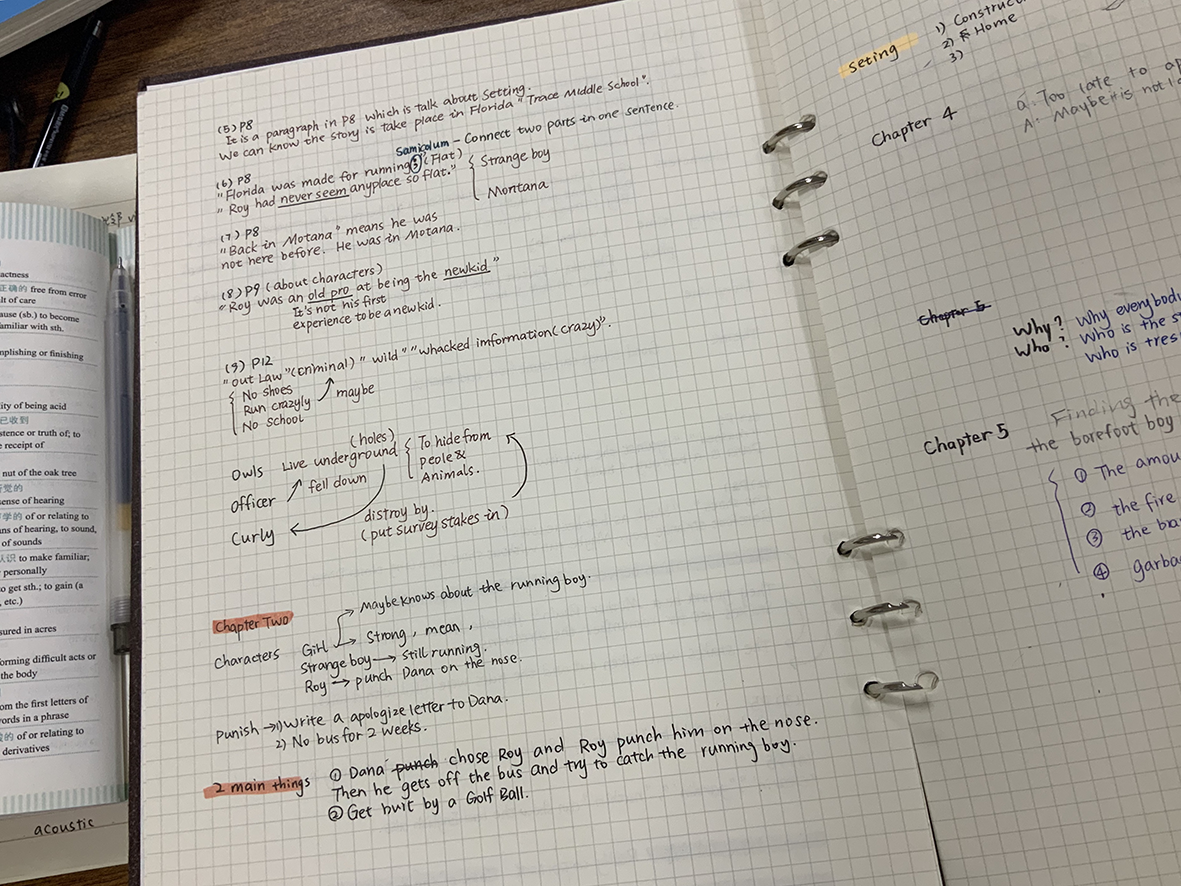 (5) P8
It is a paragraph in P8 which is talk about Setting.
We can know the story is take place in Florida "Trace Middle School".
Samicolum - Connect two parts in one sentence.
(6) P8
"Florida was made for running; (Flat)
"Roy had never seem anyplace so flat."
Strange boy
Montana
(7) P8
"Back in Motana" means he was
not here before. He was in Motana.
(8) P9 (about characters)
"Roy was an old pro at being the newkid."
It's not his first
experience to be a newkid.
(9) P12
"out Law"(Criminal) "wild" "whacked imformation(crazy)".
No shoes
Run crazyly
No school
maybe
(holes)
Owls Live underground
To hide from
peole &
Animals.
Officer
fell down
Curly
distroy by.
(put survey stakes in)
Chapter Two
Characters
Girl
Maybe knows about the running boy.
Strong, mean,
Strange boy → Still running.
Roy → punch Dana on the nose.
Punish → 1) Write a apologize letter to Dana.
2) No bus for 2 weeks.
2 main things
① Dana punch chose Roy and Roy punch him on the nose.
Then he gets off the bus and try to catch the running boy.
② Get huit by a Golf Ball.
seting
1) Construc
2) Home
3)
Chapter 4
a: Too late to ap
A: Maybe it is not
Chapter 5
Why? Why everybody
Who? Who is the s
Who is tres
Chapter 5
Finding the
the borefoot boy
① The amou
② the fire
③ the
④ garba
actness
正确的 free from error
lt of care
ause (sb.) to become
amiliar with sth.
mplishing or finishing
ity of being acid
已收到
stence or truth of; to
e receipt of
nut of the oak tree
觉的
sense of hearing
学的 of or relating to
ans of hearing, to sound,
of sounds
认识 to make familiar;
personally
to get sth.; to gain (a
, etc.)
sured in acres
orming difficult acts or
the body
om the first letters of
ords in a phrase
的 of or relating to
derivatives
acoustic